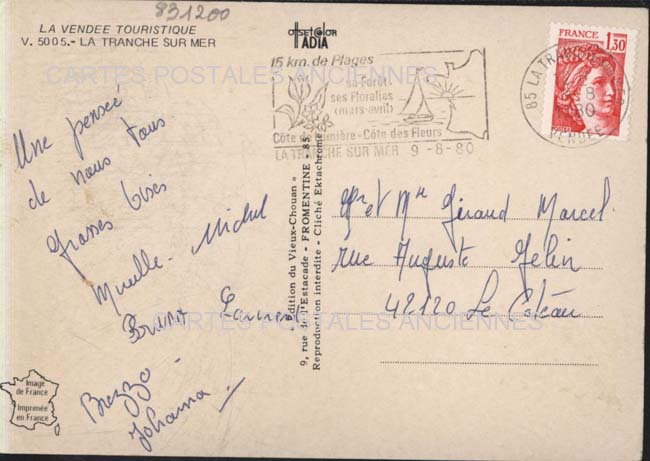 831200
LA VENDEE TOURISTIQUE
V. 5005.- LA TRANCHE SUR MER
OFFSET COLOR
ADIA
15 km. de Plages
sa Forêt
ses Floralies
(mars-avril)
Côte de Lumière - Côte des Fleurs
LA TRANCHE SUR MER 9 - 8 - 80
FRANCE
1,30
85 LA TRANCHE
VENDEE
CARTES POSTALES ANCIENNES
Une pensée
de nous tous
Grosses bises
Mireille - Michel
Bruno Laurent
Brezzo
Johanna
Edition du Vieux-Chouan
9, rue de l'Estacade - FROMENTINE - 85
Reproduction interdite - Cliché Ektachrome
Mr et Mme Géraud Marcel
rue Auguste Gelin
42120 Le Coteau
CARTES POSTALES ANCIENNES
Image
de France
Imprimée
en France